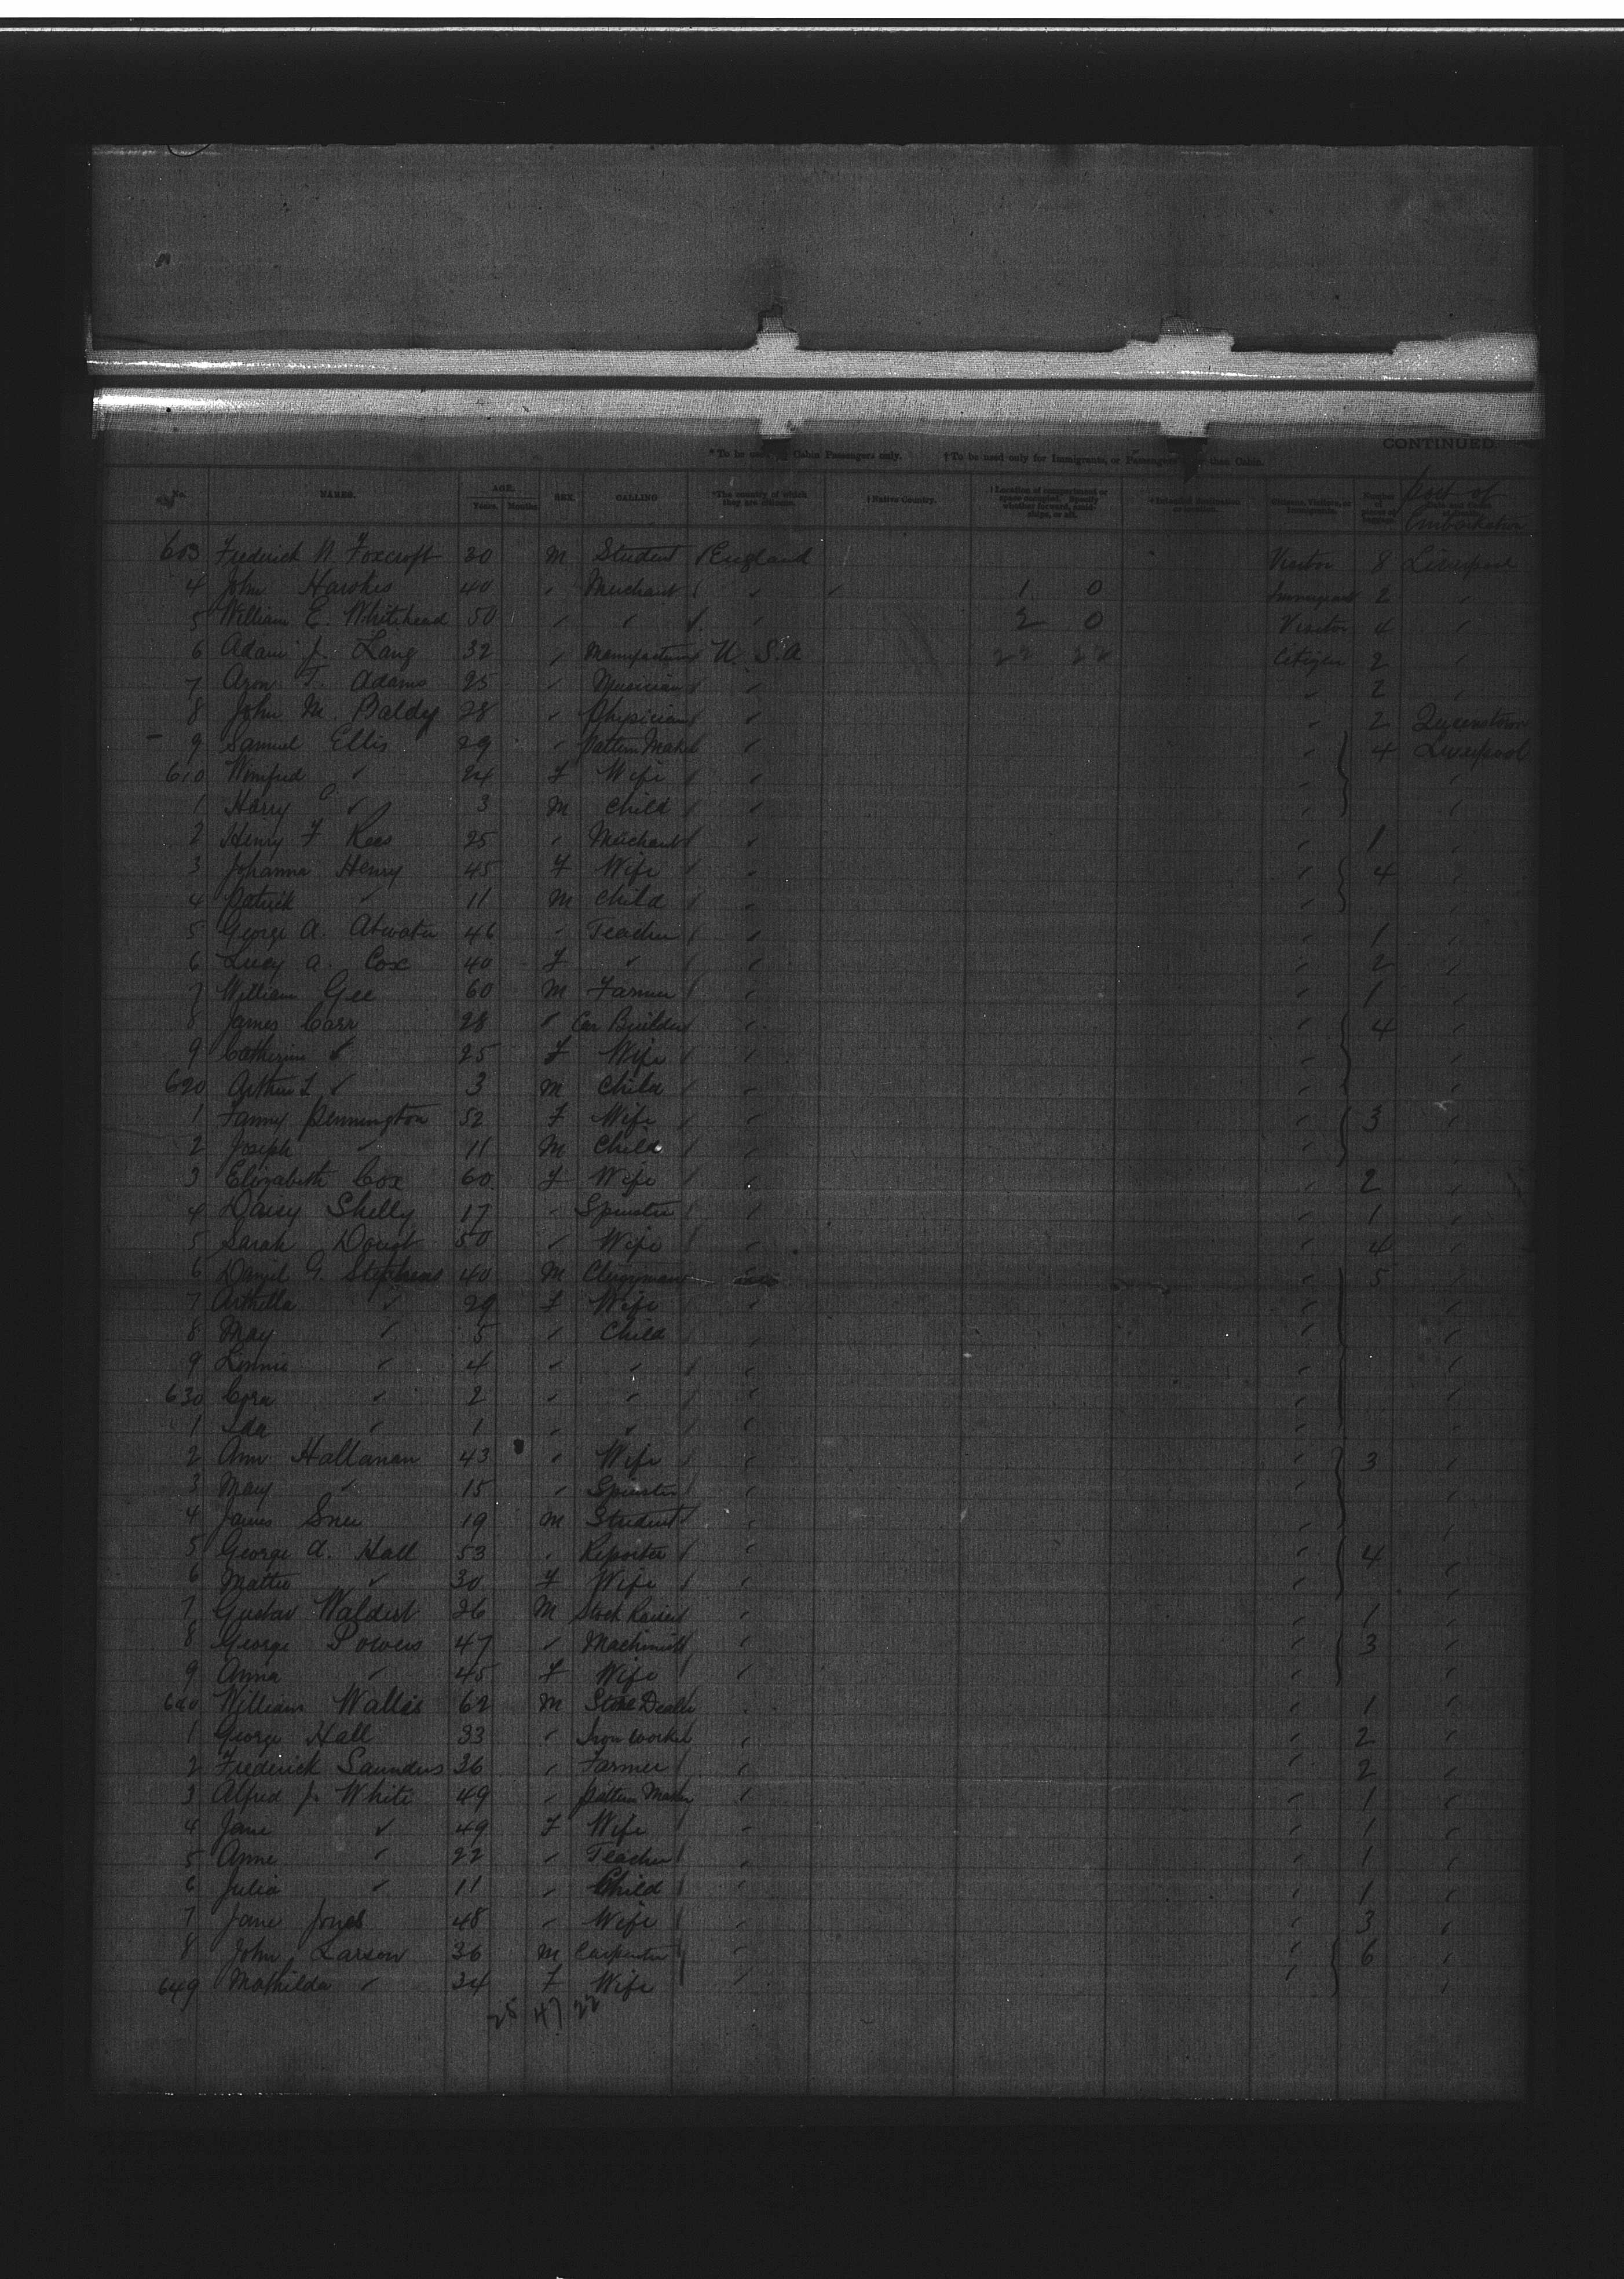 CONTINUED.
*To be used by Cabin Passengers only. †To be used only for Immigrants, or Passengers other than Cabin.
No. NAMES. AGE. Years. Months. SEX. CALLING *The country of which they are citizens. †Native Country. †Location of compartment or space occupied. Specify whether forward, amidships, or aft. Citizens, Visitors, or Immigrants. Number of pieces of baggage. Port of Embarkation
603 Frederick N. Foxcroft 30 M Student England Visitor 8 Liverpool
4 John Hawkes 40 " Merchant " " 1 0 Immigrant 2 "
5 William E. Whitehead 50 " " " 2 0 Visitor 4 "
6 Adam J. Lang 32 " Manufacturer U. S. A 22 22 Citizen 2 "
7 Aron T. Adams 25 " Musician " " 2 "
8 John M. Baldy 28 " Physician " " 2 Queenstown
9 Samuel Ellis 29 " Pattern Maker " " 4 Liverpool
610 Winifred " 24 F Wife " " "
1 Harry O. " 3 M Child " " "
2 Henry F Rees 25 " Merchant " " 1 "
3 Johanna Henry 45 F Wife " " 4 "
4 Patrick " 11 M Child " " "
5 George A. Atwater 46 " Teacher " " 1 "
6 Lucy A. Cox 40 F " " " 2 "
7 William Gee 60 M Farmer " " 1 "
8 James Carr 28 " Car Builder " " 4 "
9 Catherine " 25 F Wife " " "
620 Arthur L " 3 M Child " " "
1 Fanny Pennington 52 F Wife " " 3 "
2 Joseph " 11 M Child " " "
3 Elizabeth Cox 60 F Wife " " 2 "
4 Daisy Shelly 17 " Spinster " " 1 "
5 Sarah 50 " Wife " " 4 "
6 Daniel G. Stephens 40 M Clergyman " " 5 "
7 Arthella " 29 F Wife " " "
8 May " 5 " Child " " "
9 Linnie " 4 " " " " "
630 Cora " 2 " " " " "
1 Ida " 1 " " " " "
2 Ann Hallanan 43 " Wife " " 3 "
3 Mary " 15 " Spinster " " "
4 James 19 M Student " " "
5 George A. Hall 53 " Reporter " " 4 "
6 Mattie " 30 F Wife " " "
7 Gustav Waldert 26 M Stock Raiser " " 1 "
8 George Powers 47 " Machinist " " 3 "
9 Anna " 45 F Wife " " "
640 William Wallis 62 M Dealer " " 1 "
1 George Hall 33 " Iron Worker " " 2 "
2 Frederick Saunders 36 " Farmer " " 2 "
3 Alfred J. White 49 " Pattern Maker " " 1 "
4 Jane " 49 F Wife " " 1 "
5 Anne " 22 " Teacher " " 1 "
6 Julia " 11 " Child " " 1 "
7 Jane Jones 48 " Wife " " 3 "
8 John Larson 36 M Carpenter " " 6 "
649 Mathilda " 34 F Wife " " "
25 47 22